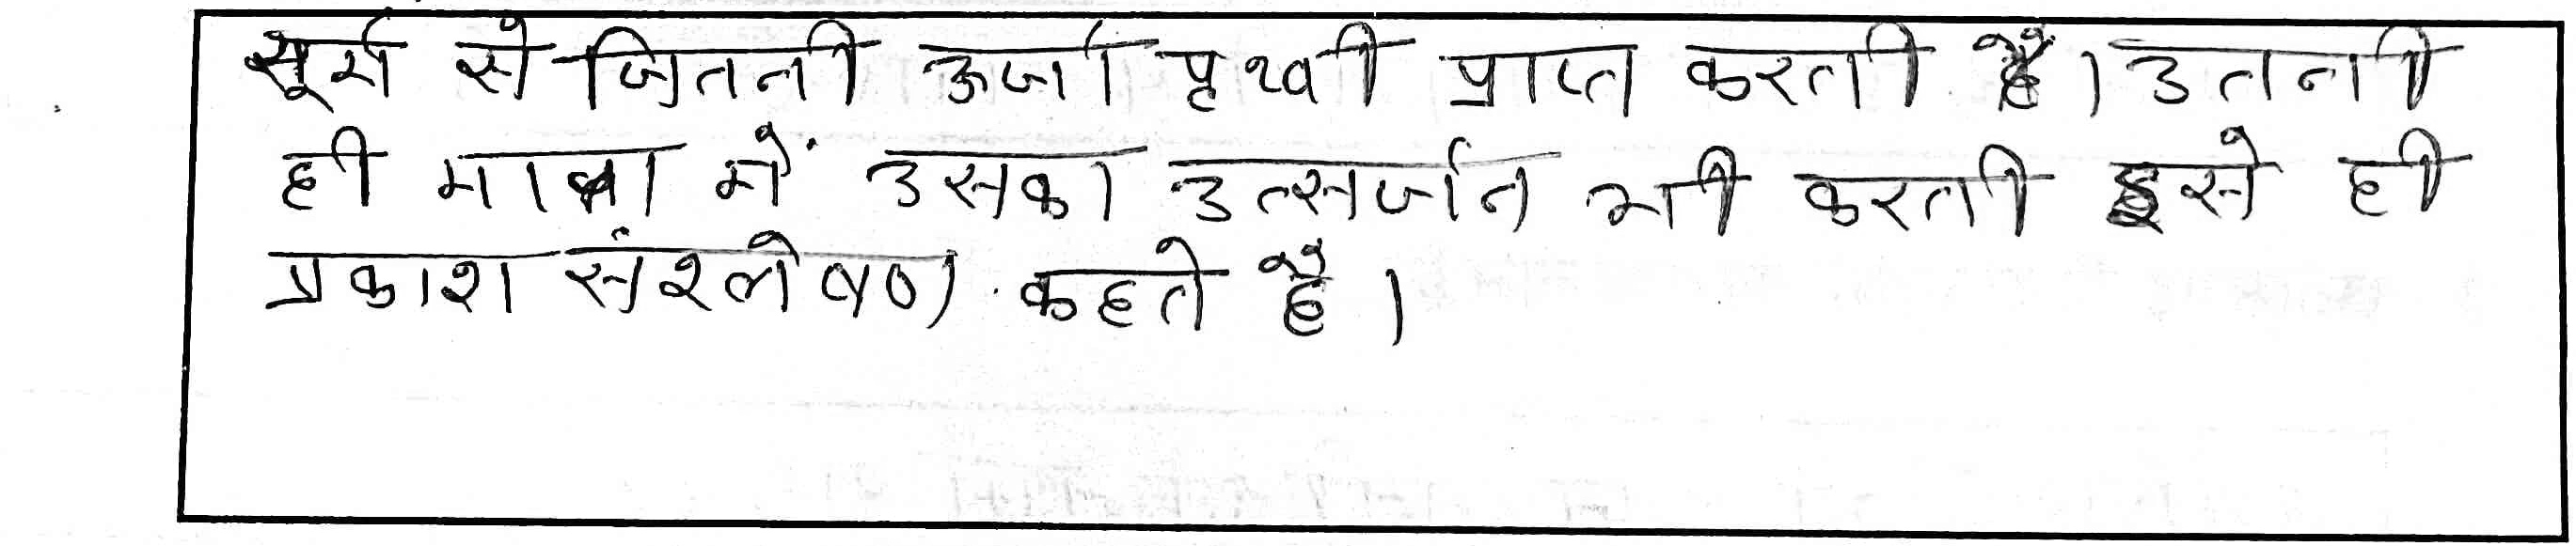 सूर्य से जितनी ऊर्जा पृथ्वी प्राप्त करती है। उतनी
ही मात्रा में उसका उत्सर्जन भी करती इसे ही
प्रकाश संश्लेषण कहते है।